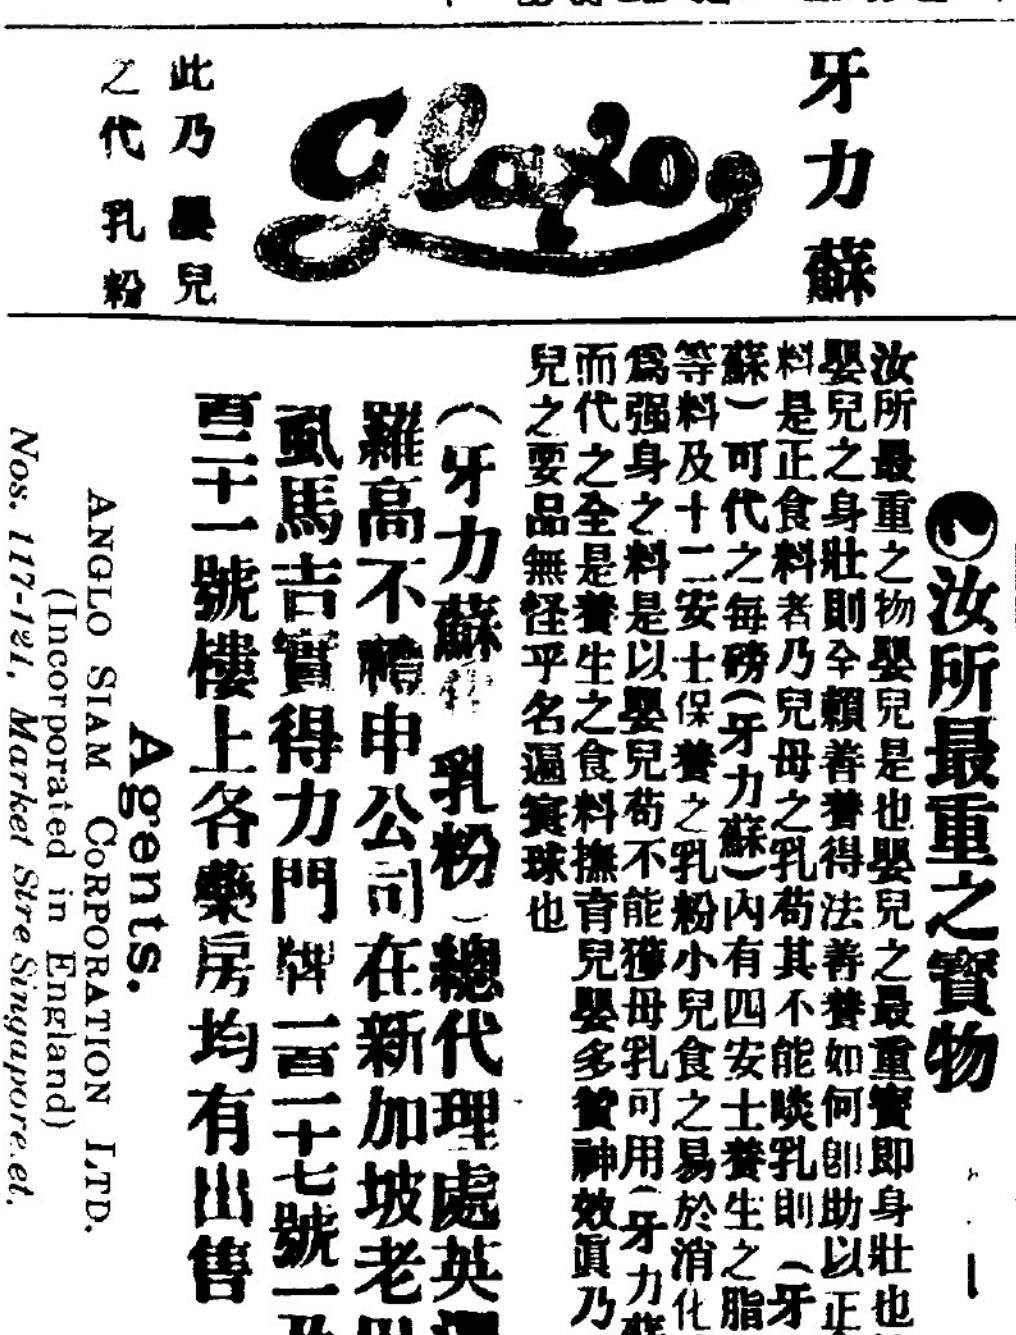 牙力蘇
Glaxo
此乃嬰兒
之代乳粉
汝所最重之寶物
汝所最重之物嬰兒是也嬰兒之最重寶即身壯也
嬰兒之身壯則全賴善養得法善養如何卽助以正
料是正食料者乃兒母之乳苟其不能啖乳則(牙
蘇)可代之每磅(牙力蘇)內有四安士養生之脂
等料及十二安士保養之乳粉小兒食之易於消化
爲强身之料是以嬰兒苟不能獲母乳可用(牙力蘇
而代之全是養生之食料撫育兒嬰多贊神效眞乃
兒之要品無怪乎名遍寰球也
(牙力蘇 乳粉)總代理處英暹
羅高不禮申公司在新加坡老巴
虱馬吉實得力門牌一百一十七號一及
百二十一號樓上各藥房均有出售
Agents.
ANGLO SIAM CORPORATION LTD.
(Incorporated in England)
Nos. 117-121, Market Stre Singapore.et.